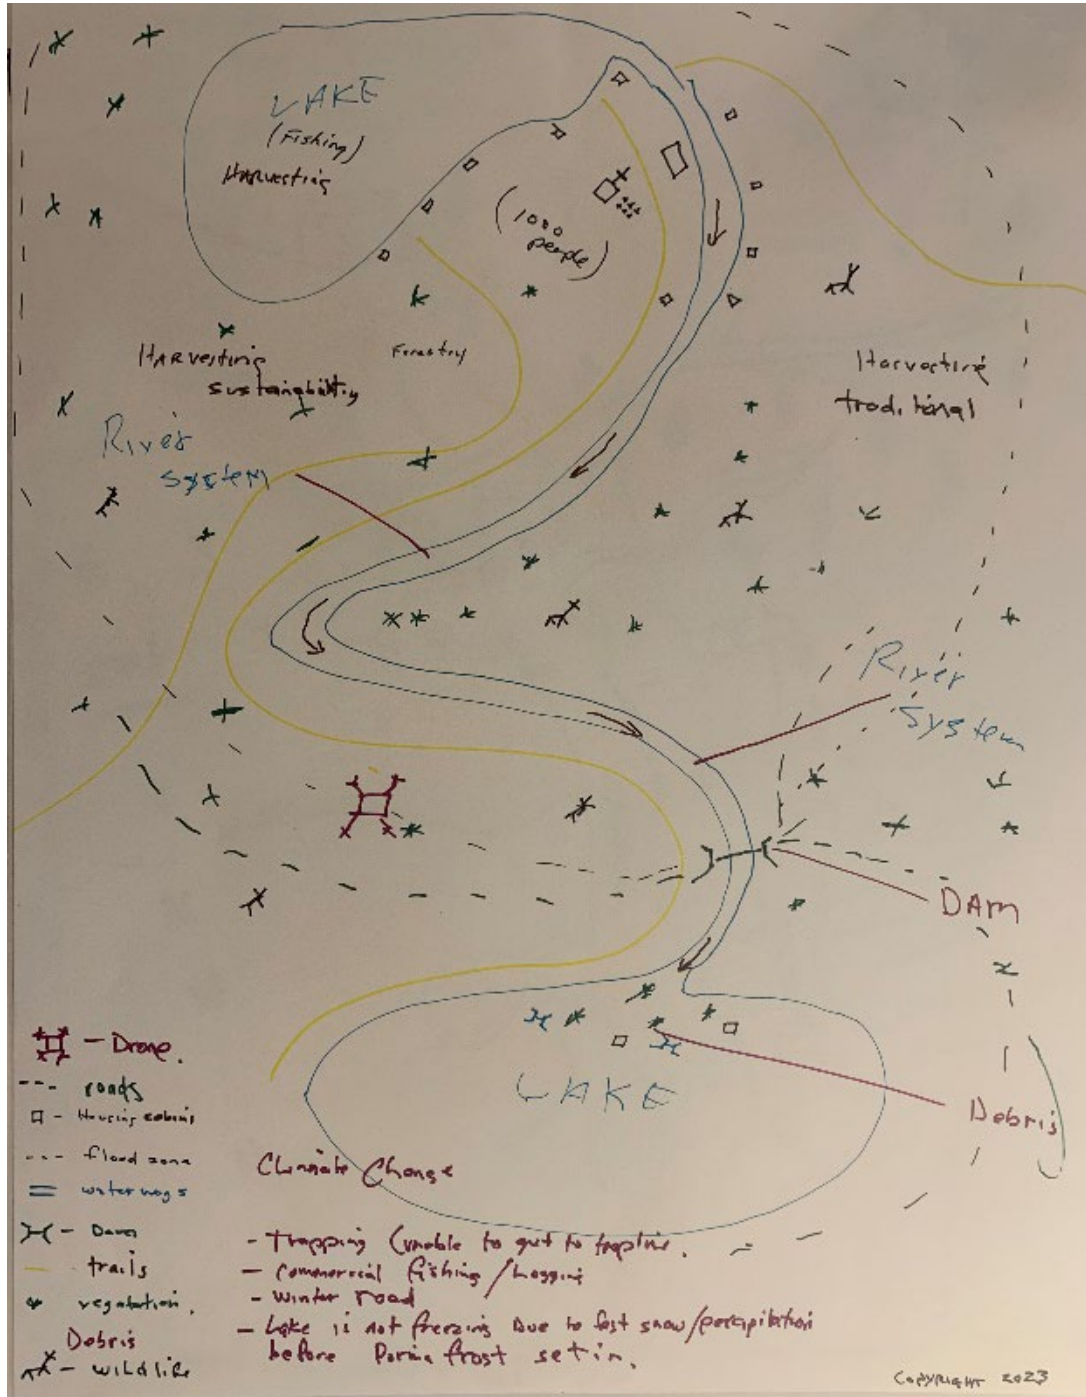 LAKE
(Fishing)
HARVesting
(1000
people)
HARVesting
sustaingbility
Forestry
Harvesting
traditional
River
system
River
System
DAM
LAKE
Debris
- Drone.
--- roads
- Housing cabins
--- flood zone
= waterways
- Dam
trails
vegatation.
Debris
- wildlife
Climate Change
- Trapping (unable to get to trapline.
- commercial fishing / Logging
- winter road
- Lake is not freezing Due to fast snow/percipitation
before Perma frost set in.
COPYRIGHT 2023